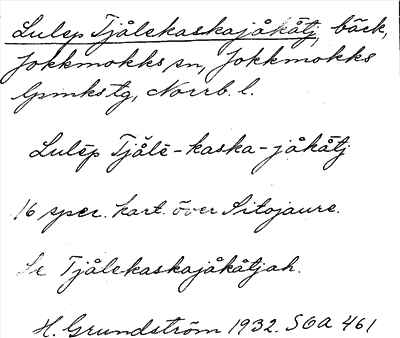 Lulep Tjålekaskajåkåtj, bäck,
Jokkmokks sn, Jokkmokks
lpmkstg, Norrb. l.
Lulēp Tjålē-kaska-jåkåtj
16 spec. kart. över Sitojaure.
Se Tjålekaskajåkåtjah.
H. Grundström 1932. SOA 461